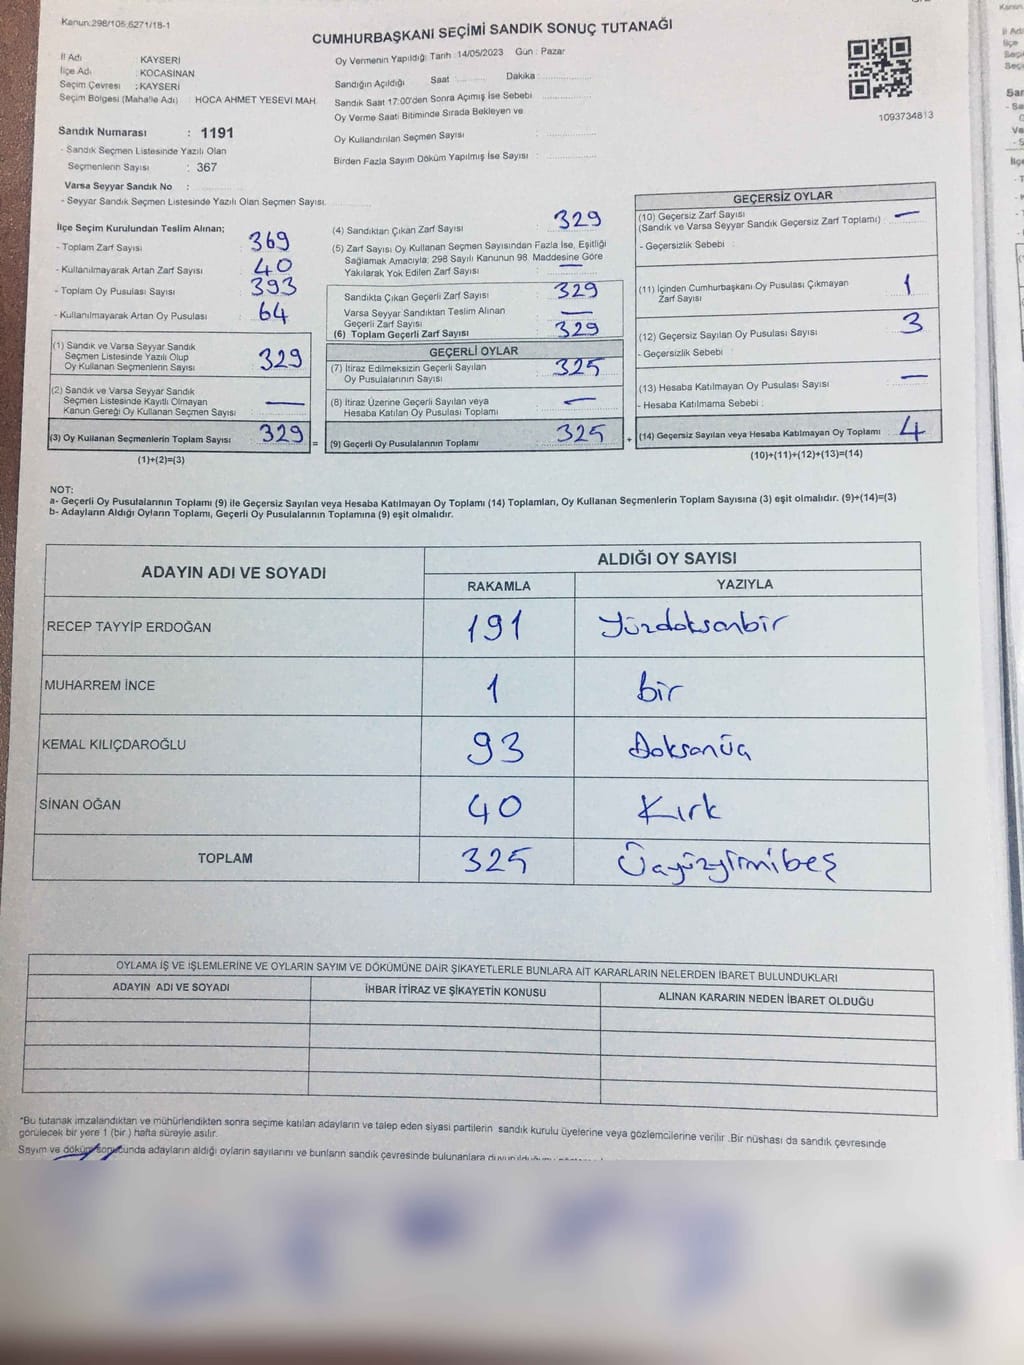 Kanun:298/105,6271/18-1
CUMHURBAŞKANI SEÇİMİ SANDIK SONUÇ TUTANAĞI
İl Adı : KAYSERİ
İlçe Adı : KOCASİNAN
Seçim Çevresi : KAYSERİ
Seçim Bölgesi (Mahalle Adı) : HOCA AHMET YESEVİ MAH.
Sandık Numarası : 1191
- Sandık Seçmen Listesinde Yazılı Olan
Seçmenlerin Sayısı : 367
Varsa Seyyar Sandık No :
- Seyyar Sandık Seçmen Listesinde Yazılı Olan Seçmen Sayısı:
Oy Vermenin Yapıldığı Tarih :14/05/2023 Gün : Pazar
Sandığın Açıldığı Saat : Dakika :
Sandık Saat 17:00'den Sonra Açılmış İse Sebebi :
Oy Verme Saati Bitiminde Sırada Bekleyen ve
Oy Kullandırılan Seçmen Sayısı :
Birden Fazla Sayım Döküm Yapılmış İse Sayısı :
1093734813
İlçe Seçim Kurulundan Teslim Alınan;
- Toplam Zarf Sayısı : 369
- Kullanılmayarak Artan Zarf Sayısı : 40
- Toplam Oy Pusulası Sayısı : 393
- Kullanılmayarak Artan Oy Pusulası : 64
(1) Sandık ve Varsa Seyyar Sandık
Seçmen Listesinde Yazılı Olup
Oy Kullanan Seçmenlerin Sayısı : 329
(2) Sandık ve Varsa Seyyar Sandık
Seçmen Listesinde Kayıtlı Olmayan
Kanun Gereği Oy Kullanan Seçmen Sayısı : —
(3) Oy Kullanan Seçmenlerin Toplam Sayısı : 329 =
(1)+(2)=(3)
(4) Sandıktan Çıkan Zarf Sayısı : 329
(5) Zarf Sayısı Oy Kullanan Seçmen Sayısından Fazla İse, Eşitliği
Sağlamak Amacıyla; 298 Sayılı Kanunun 98. Maddesine Göre
Yakılarak Yok Edilen Zarf Sayısı : —
Sandıkta Çıkan Geçerli Zarf Sayısı : 329
Varsa Seyyar Sandıktan Teslim Alınan
Geçerli Zarf Sayısı : —
(6) Toplam Geçerli Zarf Sayısı : 329
GEÇERLİ OYLAR
(7) İtiraz Edilmeksizin Geçerli Sayılan
Oy Pusulalarının Sayısı : 325
(8) İtiraz Üzerine Geçerli Sayılan veya
Hesaba Katılan Oy Pusulası Toplamı : —
(9) Geçerli Oy Pusulalarının Toplamı : 325 +
GEÇERSİZ OYLAR
(10) Geçersiz Zarf Sayısı
(Sandık ve Varsa Seyyar Sandık Geçersiz Zarf Toplamı) : —
- Geçersizlik Sebebi :
(11) İçinden Cumhurbaşkanı Oy Pusulası Çıkmayan
Zarf Sayısı : 1
(12) Geçersiz Sayılan Oy Pusulası Sayısı : 3
- Geçersizlik Sebebi :
(13) Hesaba Katılmayan Oy Pusulası Sayısı : —
- Hesaba Katılmama Sebebi :
(14) Geçersiz Sayılan veya Hesaba Katılmayan Oy Toplamı : 4
(10)+(11)+(12)+(13)=(14)
NOT:
a- Geçerli Oy Pusulalarının Toplamı (9) ile Geçersiz Sayılan veya Hesaba Katılmayan Oy Toplamı (14) Toplamları, Oy Kullanan Seçmenlerin Toplam Sayısına (3) eşit olmalıdır. (9)+(14)=(3)
b- Adayların Aldığı Oyların Toplamı, Geçerli Oy Pusulalarının Toplamına (9) eşit olmalıdır.
ADAYIN ADI VE SOYADI ALDIĞI OY SAYISI
RAKAMLA YAZIYLA
RECEP TAYYİP ERDOĞAN 191 Yüzdoksanbir
MUHARREM İNCE 1 bir
KEMAL KILIÇDAROĞLU 93 Doksanüç
SİNAN OĞAN 40 Kırk
TOPLAM 325 Üçyüzyirmibeş
OYLAMA İŞ VE İŞLEMLERİNE VE OYLARIN SAYIM VE DÖKÜMÜNE DAİR ŞİKAYETLERLE BUNLARA AİT KARARLARIN NELERDEN İBARET BULUNDUKLARI
ADAYIN ADI VE SOYADI İHBAR İTİRAZ VE ŞİKAYETİN KONUSU ALINAN KARARIN NEDEN İBARET OLDUĞU
*Bu tutanak imzalandıktan ve mühürlendikten sonra seçime katılan adayların ve talep eden siyasi partilerin sandık kurulu üyelerine veya gözlemcilerine verilir .Bir nüshası da sandık çevresinde
görülecek bir yere 1 (bir ) hafta süreyle asılır.
Sayım ve döküm sonucunda adayların aldığı oyların sayılarını ve bunların sandık çevresinde bulunanlara